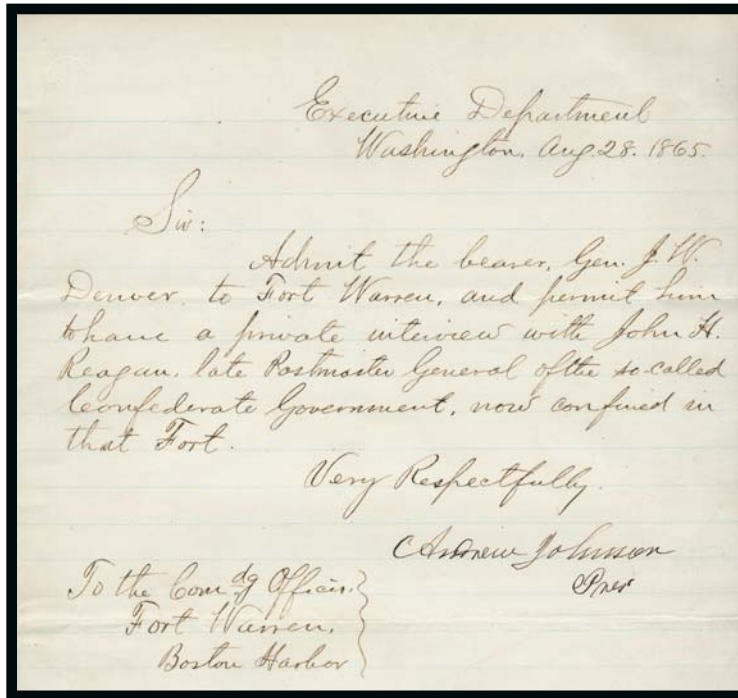 Executive Department
Washington, Aug. 28. 1865.
Sir:
Admit the bearer, Gen. J. W.
Denver, to Fort Warren, and permit him
to have a private interview with John H.
Reagan, late Postmaster General of the so-called
Confederate Government, now confined in
that Fort.
Very Respectfully.
Andrew Johnson
Pres
To the Comdg Officer.
Fort Warren,
Boston Harbor